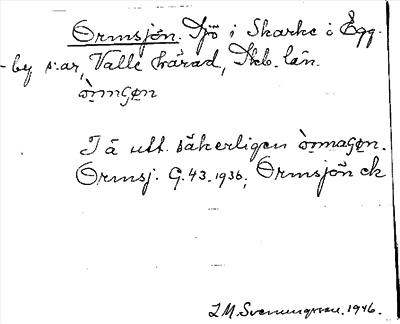 Ormsjön. Sjö i Skarke o Egg-
by s:ar, Valle härad, Skb. län.
I ä utt. säkerligen
Ormsj. G. 43. 1936; Ormsjön ek
I.M. Svenungsson. 1946.